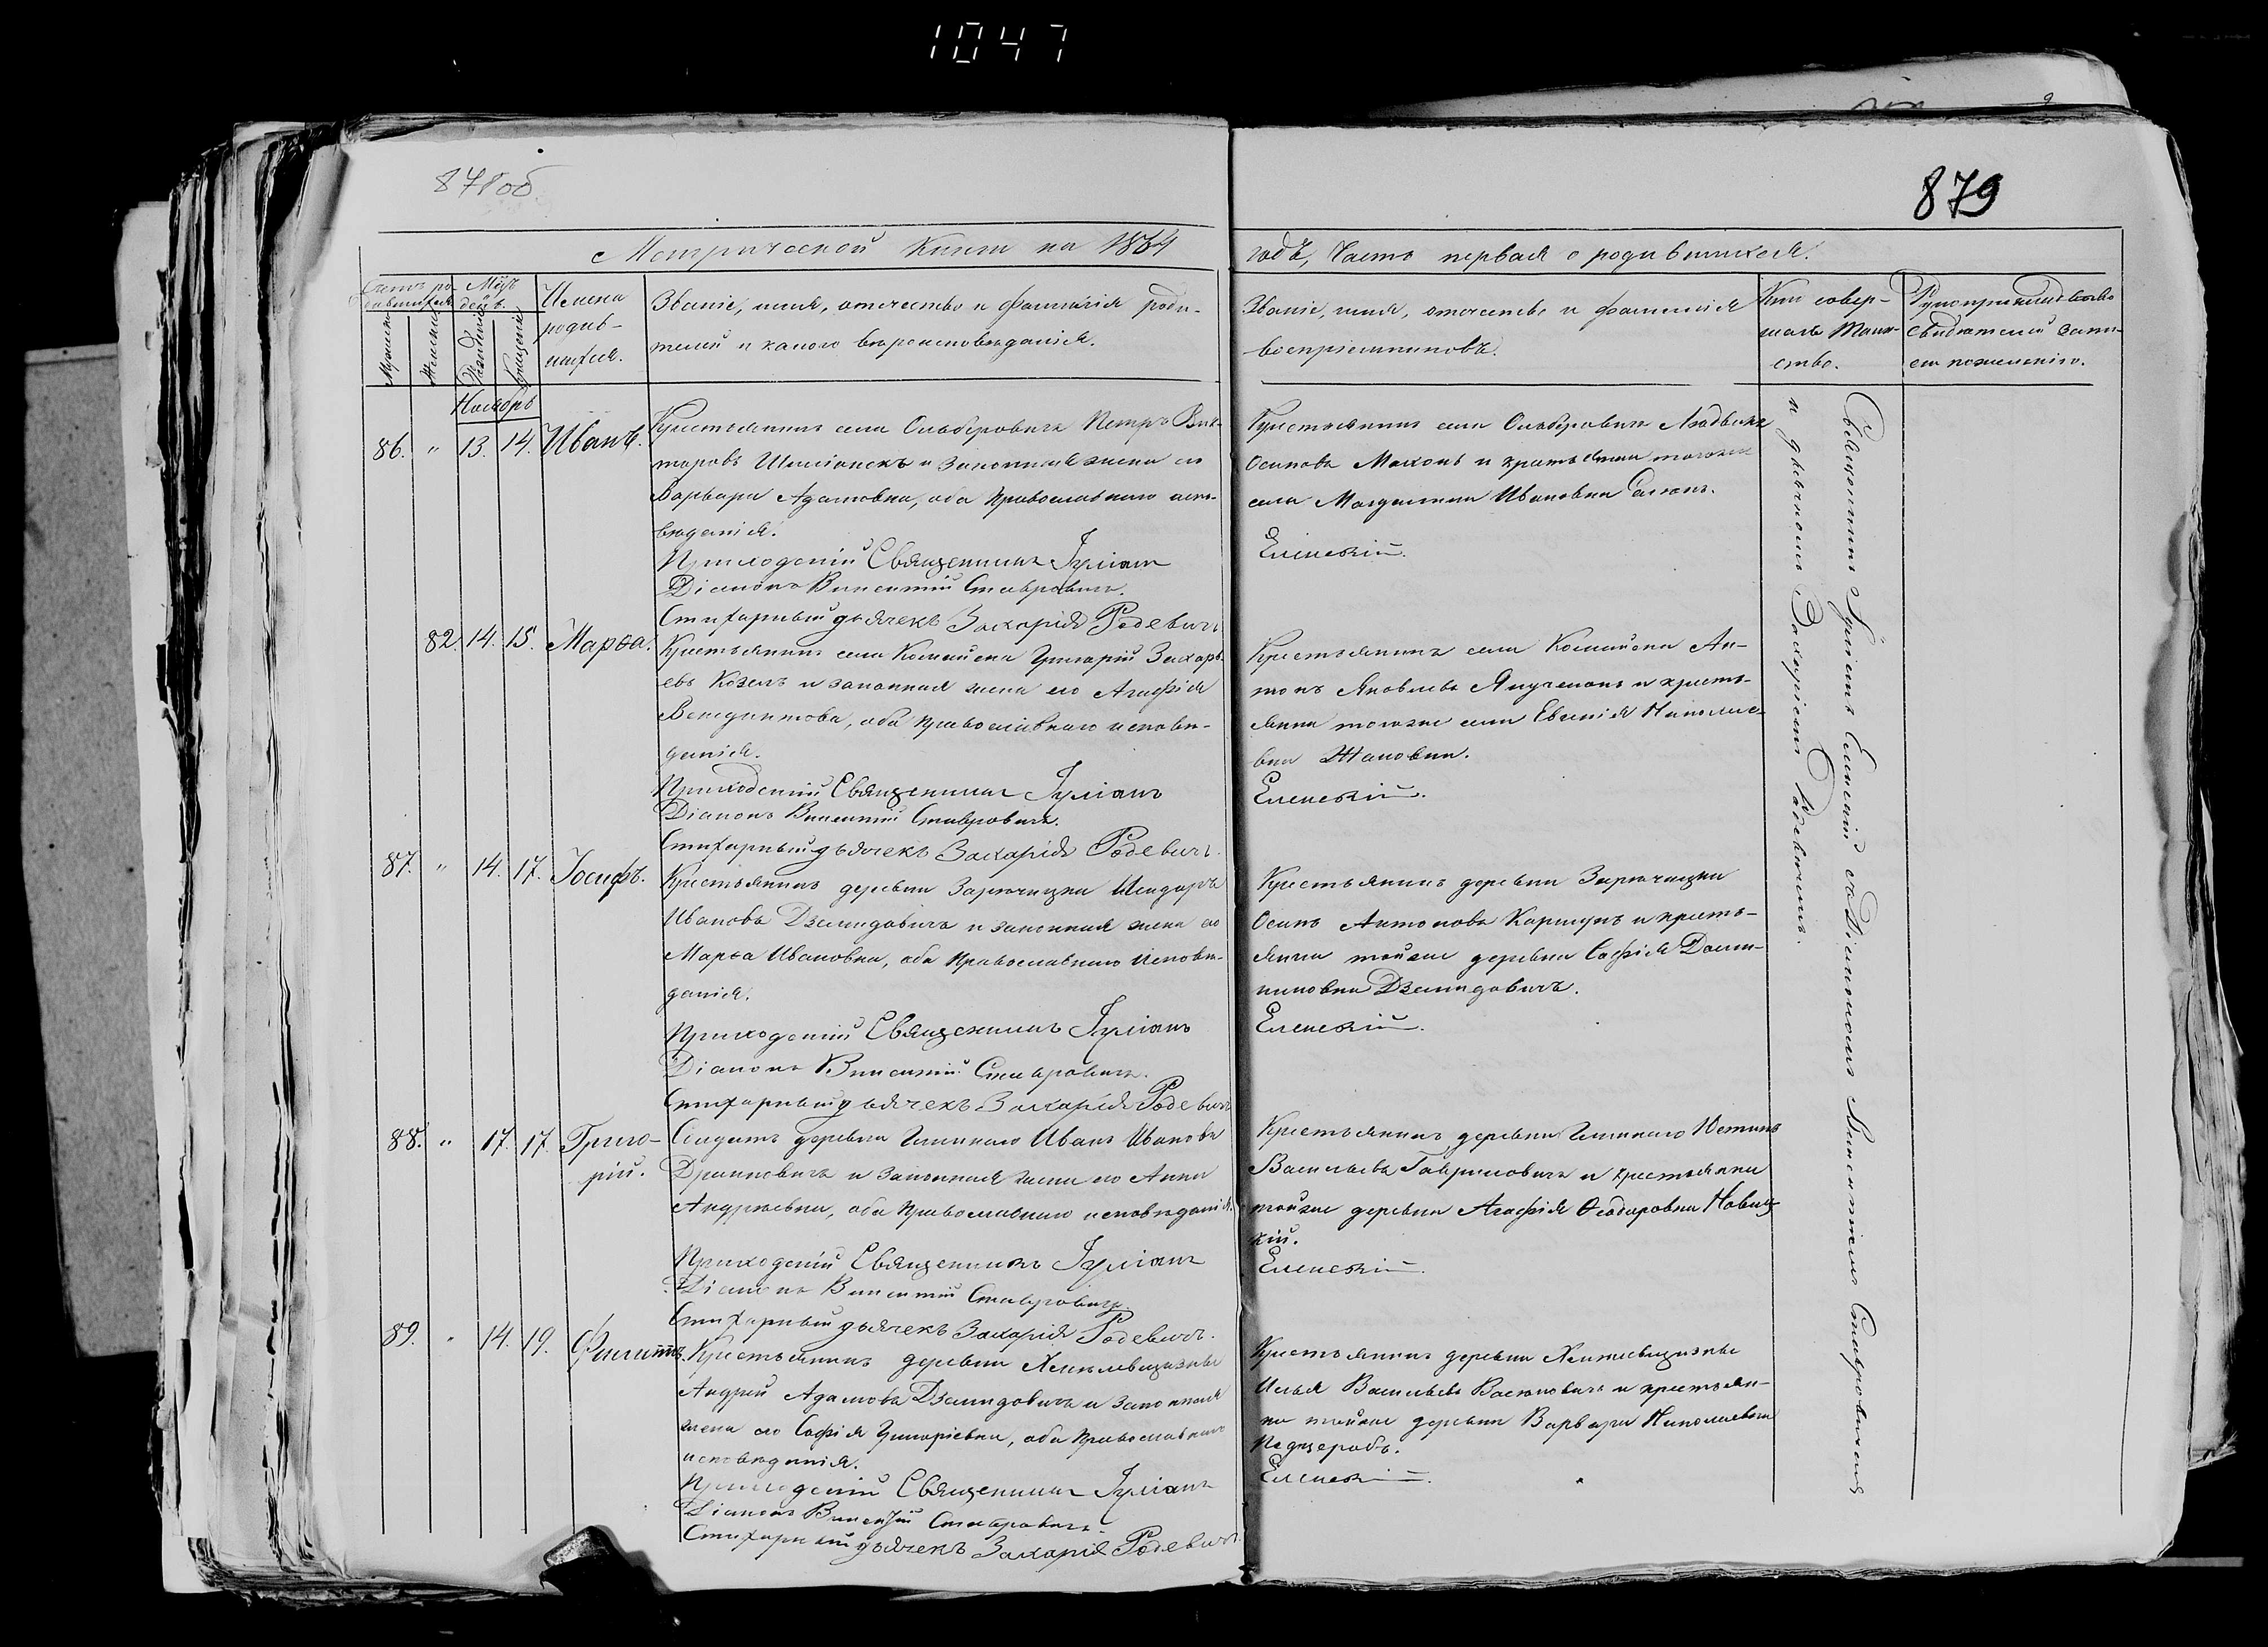 1047
878об
879
Метрической Книги на 1864
годъ, Часть первая о родившихся.
Счетъ ро-
дившихся.
Мужеска
Женска
Мсцъ
дни.
Рожденія
Крещенія
Имена
родив-
шихся.
Званіе, имя, отечество и фамилія роди-
телей и какого вѣроисповѣданія.
Званіе, имя, отечество и фамилія
воспріемниковъ.
Кто совер-
шалъ таин-
ство.
Рукоприкладство
свидѣтелей запи-
си по желанію.
Ноябрь
86. " 13. 14. Иванъ.
Крестьянинъ села Ольберовичъ Петръ Вик-
торовъ и законная жена его
Варвара Адамовна, оба православнаго испо-
вѣданія.
Приходскій Священникъ Іуліанъ
Діаконъ Викентій Ставровичъ.
Стихарный дьячекъ Захарія Родевичъ
Крестьянинъ села Ольберовичъ Людвикъ
Осиповъ и крестьянка тогоже
села Магдалина Ивановна
Еленскій.
82. 14. 15. Марѳа.
Крестьянинъ села Григорій Захарь-
евъ Козелъ и законная жена его Агафія
Венедиктова, оба православнаго исповѣ-
данія.
Приходскій Священникъ Іуліанъ
Діаконъ Викентій Ставровичъ.
Стихарный дьячекъ Захарія Родевичъ.
Крестьянинъ села Ан-
тонъ Яковлевъ и кресть-
янка тогоже села Евгенія Николае-
вна
Еленскій.
87. " 14. 17. Іосифъ.
Крестьянинъ деревни Заречицки Исидоръ
Ивановъ Дземидовичъ и законная жена его
Марѳа Ивановна, оба православнаго исповѣ-
данія.
Приходскій Священникъ Іуліанъ
Діаконъ Викентій Ставровичъ.
Стихарный дьячекъ Захарія Родевичъ
Крестьянинъ деревни Заречицки
Осипъ Антоновъ Каршунъ и кресть-
янка тойже деревни Софія Доми-
никовна Дземидовичъ.
Еленскій.
88. " 17. 17. Григо-
рій.
Солдатъ деревни Иванъ Ивановъ
и законная жена его Анна
Андреевна, оба православнаго исповѣданія.
Приходскій Священникъ Іуліанъ
Діаконъ Викентій Ставровичъ.
Стихарный дьячекъ Захарія Родевичъ.
Крестьянинъ деревни Устинъ
Васильевъ Гавриловичъ и крестьянка
тойже деревни Агафія Ѳеодоровна Новиц-
кій.
Еленскій.
89. " 14. 19. Филиппъ.
Крестьянинъ деревни
Андрей Адамовъ Дземидовичъ и законная
жена его Софія Григоріевна, оба православнаго
исповѣданія.
Приходскій Священникъ Іуліанъ
Діаконъ Викентій Ставровичъ.
Стихарный дьячекъ Захарія Родевичъ.
Крестьянинъ деревни
Илья Васильевъ Васюковичъ и крестьян-
ка тойже деревни Варвара Николаевна
Педзерабъ.
Еленскій.
Священникъ Іуліанъ Еленскій съ Діакономъ Викентіемъ Ставровичемъ
и дьячкомъ Захаріемъ Родевичемъ.